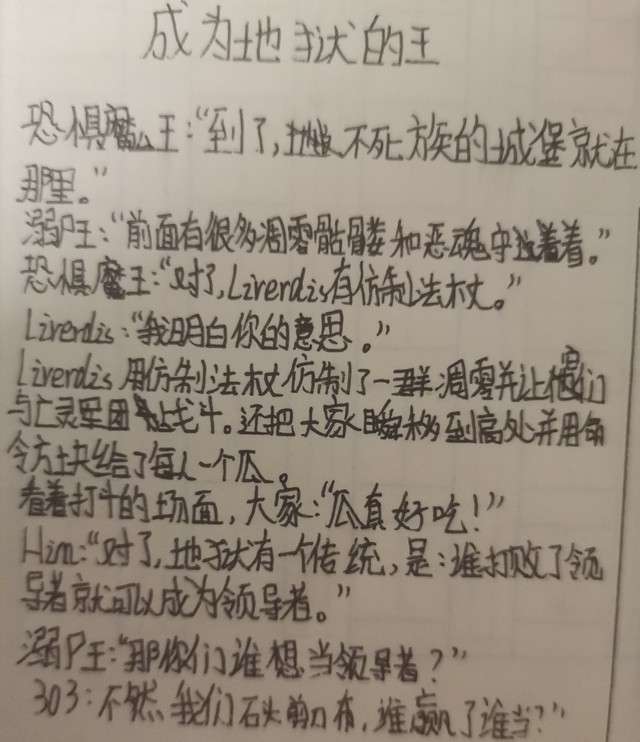 成为地狱的王
恐惧魔王:“到了,不死族的城堡就在
那里。”
溺尸王:“前面有很多凋零骷髅和恶魂守着。”
恐惧魔王:“对了,Liverdis有仿制法杖。”
Liverdis:“我明白你的意思。”
Liverdis用仿制法杖仿制了一群凋零并让他们
与亡灵军团战斗。还把大家瞬移到高处并用命
令方块给了每人一个瓜。
看着打斗的场面,大家:“瓜真好吃!”
Him:“对了,地狱有一个传统,是:谁打败了领
导者就可以成为领导者。”
溺尸王:“那你们谁想当领导者?”
303:不然我们石头剪刀布,谁赢了谁当?”